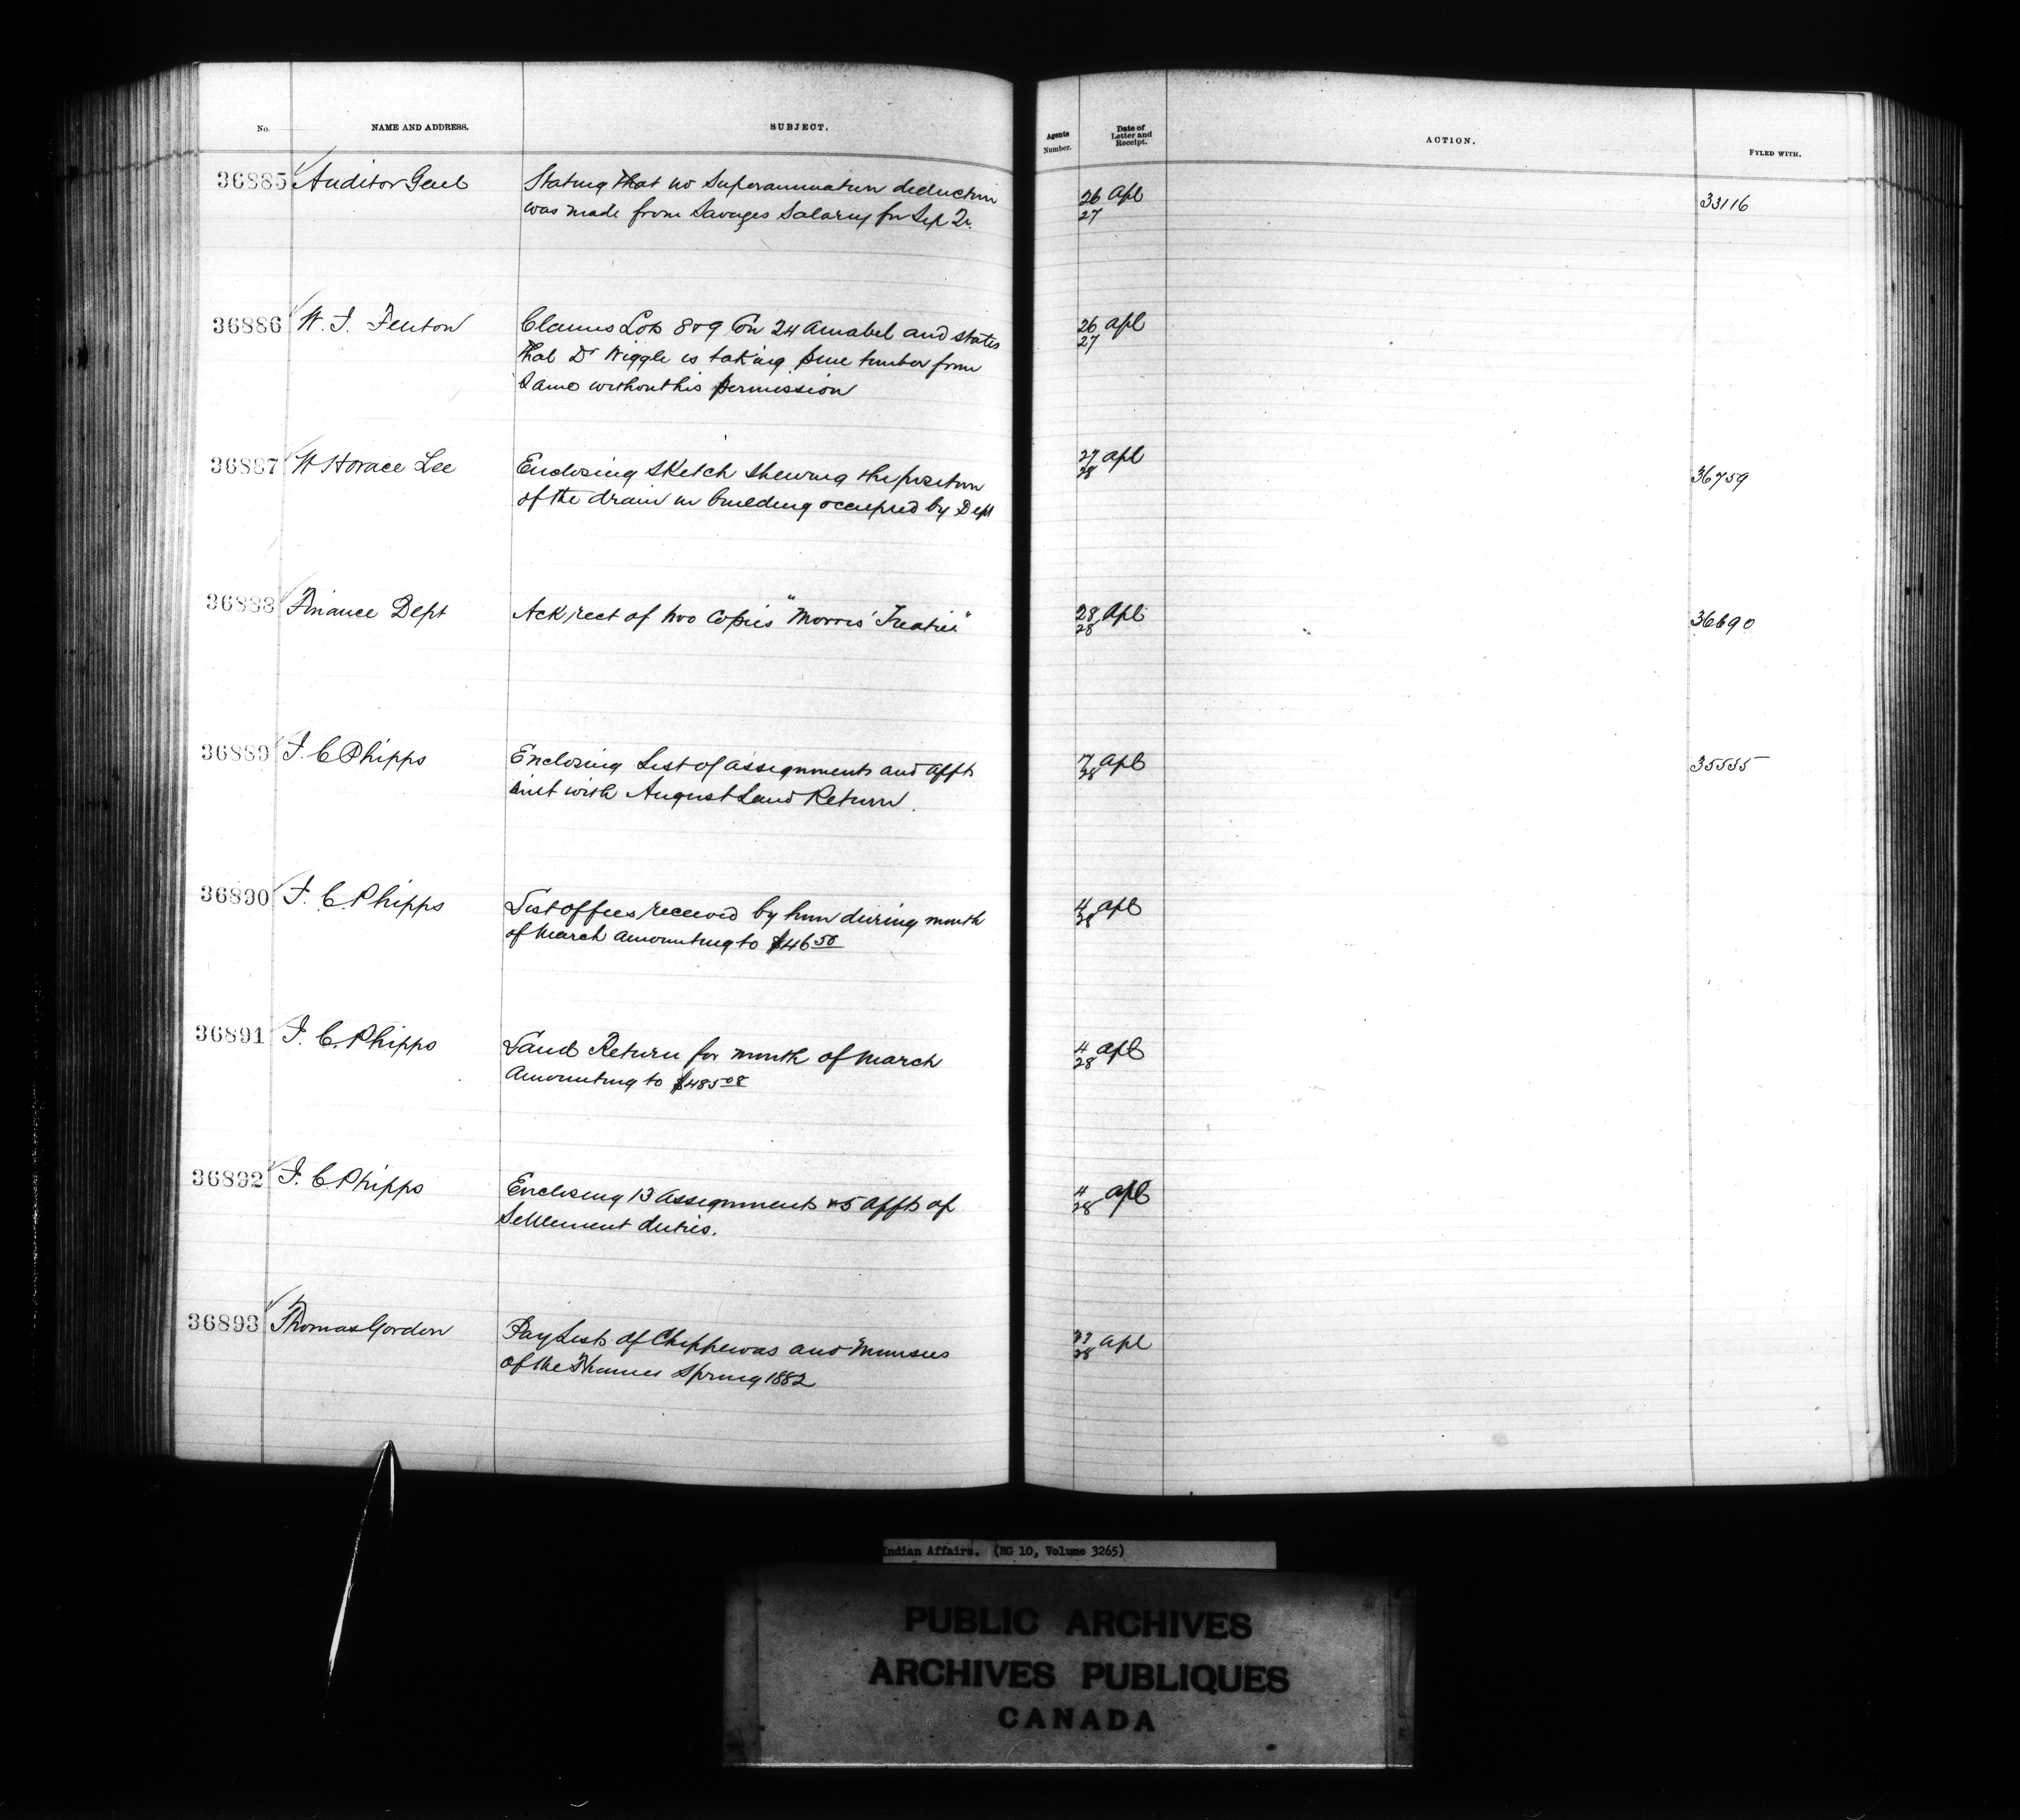 No. NAME AND ADDRESS. SUBJECT. Agents Number. Date of Letter and Receipt. ACTION. FYLED WITH.
36885 Auditor Genl Stating that no Superannuation deduction 26 Apl 33116
was made from Savages Salary for Sep Qr. 27
36886 W. J. Fenton Claims Lots 8 & 9 Con 24 Amabel and states 26 apl
that Dr Wiggle is taking pine timber from 27
Same without his permission
36887 W Horace Lee Enclosing Sketch shewing the position 27 apl 36759
of the drain in building occupied by Dept 28
36888 Finance Dept Ack rect of two Copies "Morris' Treaties" 28 Apl 36690
28
36889 J. C. Phipps Enclosing List of assignments and affts 7 apl 35555
sent with August Land Return. 28
36890 J. C. Phipps List of fees received by him during month 4 apl
of March amounting to $46 50 28
36891 J. C. Phipps Land Return for month of March 4 apl
Amounting to $485 08 28
36892 J. C. Phipps Enclosing 13 Assignments & 5 affts of 4 apl
Settlement duties. 28
36893 Thomas Gordon Pay Lists of Chippewas and Munsees apl
of the Thames Spring 1882 28
Indian Affairs. (RG 10, Volume 3265)
PUBLIC ARCHIVES
ARCHIVES PUBLIQUES
CANADA